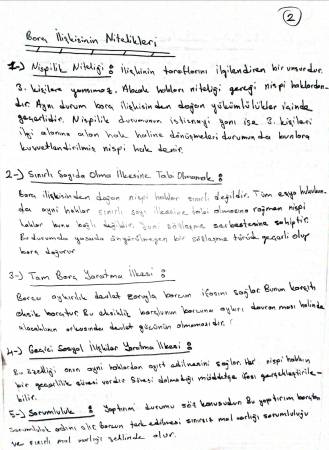 2
Borç İlişkisinin Nitelikleri
1-) Nispilik Niteliği : ilişkinin taraflarını ilgilendiren bir unsurdur.
3. kişilere yansımaz. Alacak hakları niteliği gereği nispi haklardan-
dır. Aynı durum borç ilişkisinden doğan yükümlülükler içinde
geçerlidir. Nispilik durumunun istisnayi yanı ise 3. kişileri
ilgi alanına alan hak haline dönüşmeleri durumunda bunlara
kuvvetlendirilmiş nispi hak denir.
2-) Sınırlı Sayıda Olma İlkesine Tabi Olmamak :
Borç ilişkisinden doğan nispi haklar sınırlı değildir. Tüm eşya hukukun-
da ayni haklar sınırlı sayı ilkesine tabi olmasına rağmen nispi
haklar buna bağlı değildir. Yani sözleşme serbestesine sahiptir.
Bu durumda yasada öngörülmeyen bir sözleşme türüde geçerli olup
borç doğurur
3-) Tam Borç Yaratma İlkesi :
Borca aykırılık devlet zoruyla borcun ifasını sağlar. Bunun karşıtı
eksik borçtur. Bu eksiklik borçlunun borcuna aykırı davranması halinde
alacaklının arkasında devlet gücünün olmamasıdır.
4-) Geçici Sosyal İlişkiler Yaratma İlkesi :
Bu özelliği onun ayni haklardan ayırt edilmesini sağlar. Her nispi hakkın
bir geçerlilik süresi vardır. Süresi dolmadığı müddetçe ifası gerçekleştirile-
bilir.
5-) Sorumluluk : Yaptırım durumu söz konusudur. Bu yaptırım borçtan
Sorumluluk adını alır. Borcun terk edilmesi sınırsız mal varlığı sorumluluğu
ve sınırlı mal varlığı şeklinde olur.